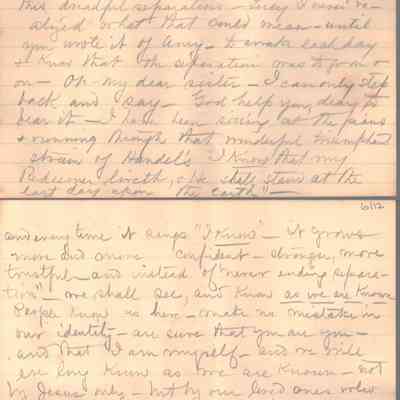 this dreadful separation — Lucy I never re-
alized what that could mean — until
you wrote it of Amy — to awake each day
& know that the separation was to go on &
on — Oh my dear sister — I can only step
back and say — God help you, dear, to
bear it — I have been sitting at the piano
& running through that wonderful triumphant
strain of Handel's "I Know that my
Redeemer liveth, & He shall stand at the
last day upon the Earth" —
6/12
and every time it sings "I Know" — it grows
more and more confident — stronger, more
trustful — and instead of "never ending separa-
tion" — we shall see, and know as we are known
People know us here — make no mistake in
our identity — are sure that you are you —
and that I am myself — and we will
ere long know as we are known — not
by Jesus only — but by our loved ones who